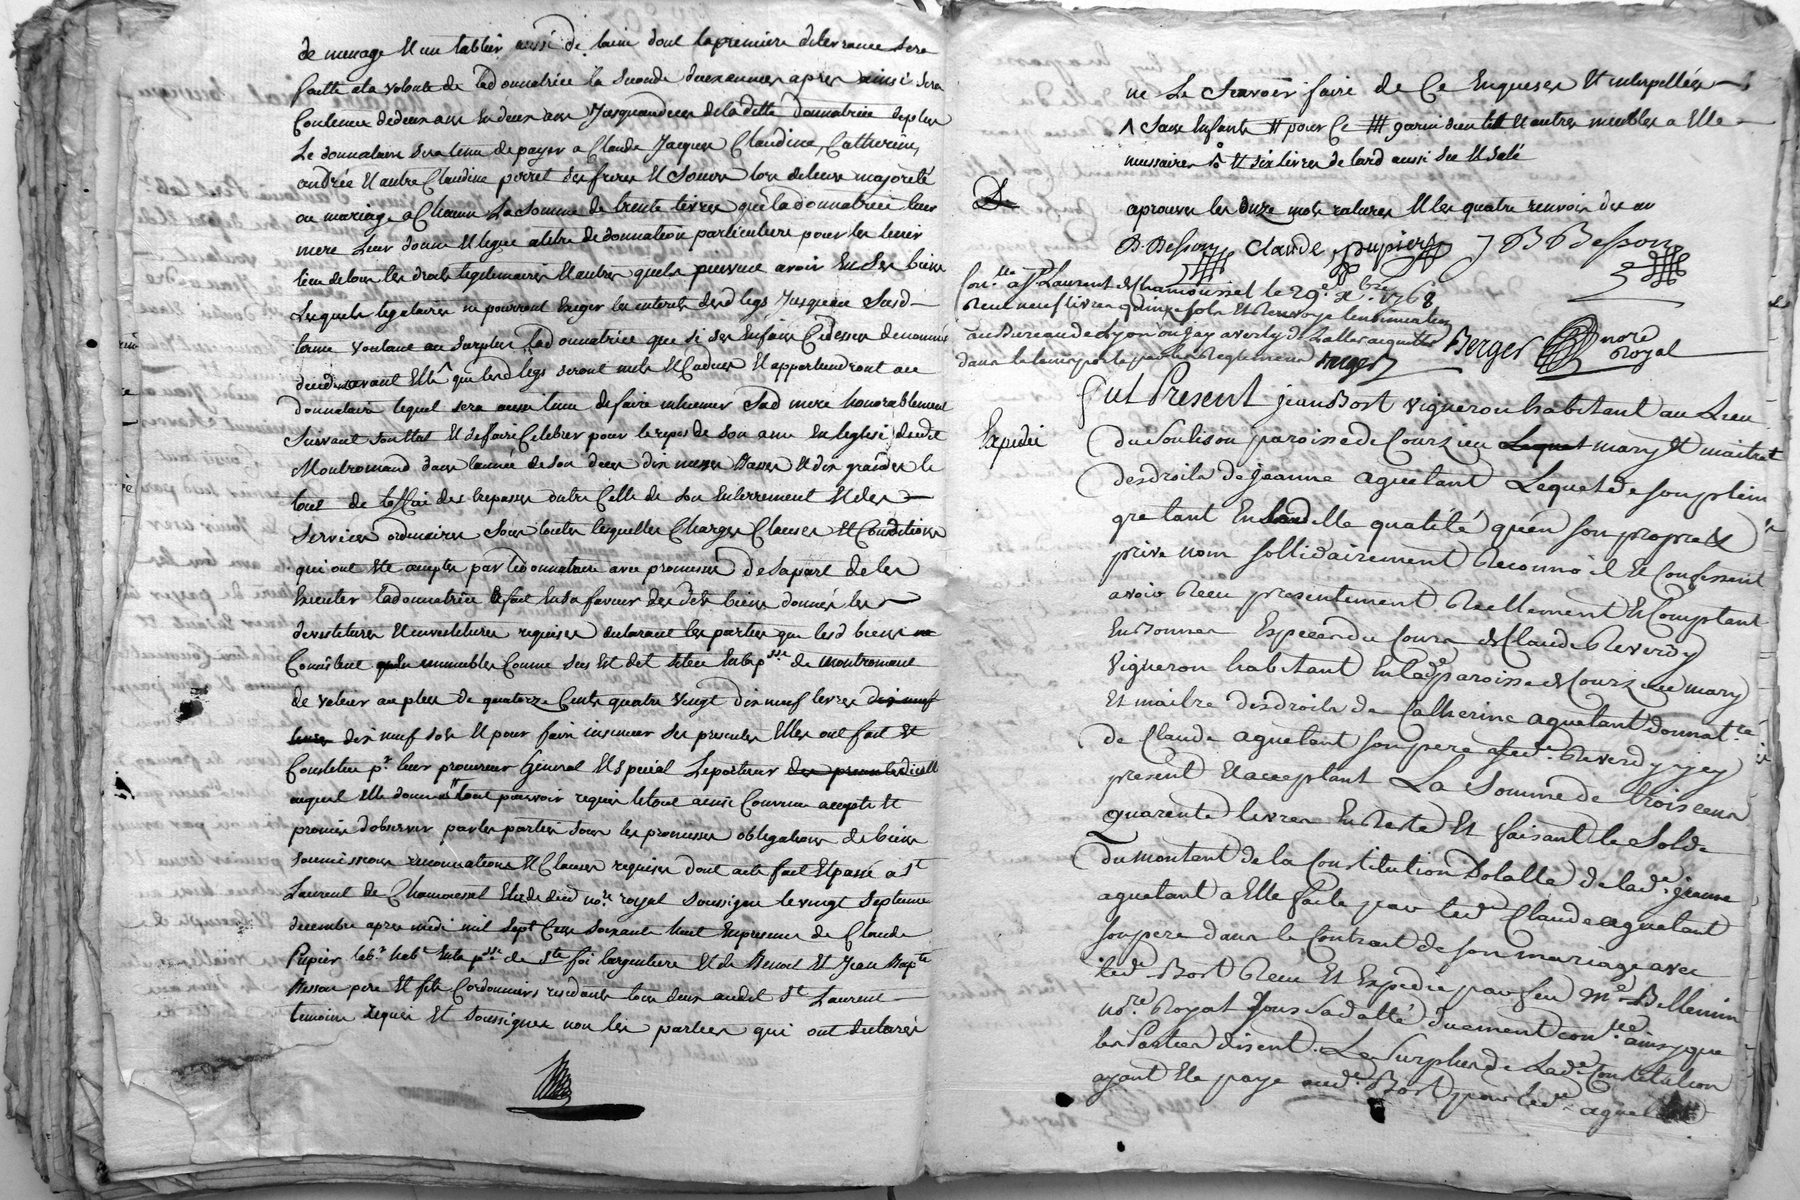 de menage et un tablier aussi de laine dont la premiere delivrance sera
faitte a la volonté de la donnatrice la seconde deux annees apres ainsi sera
Continué de deux ans en deux ans jusqu'au deces de laditte donnatrice deplus
Le donnataire sera tenu de payer a Claude Jacques Claudine, Catherine,
andrée et autre Claudine porret ses freres et soeurs lors de leur majorité
ou mariage a Chacun La somme de trente livres que la donnatrice leur
mere leur donne et legue a titre de donnation particuliere pour leur tenir
lieu de tous les droits legitimaires et autres quels puissent avoir en ses biens
Lesquels legataires ne pourront exiger les interets desd legs jusqu'au susd
terme voulant au surplus la donnatrice que si ses enfans Cidessus denommés
decedes avant elle ^ que lesd legs seront nuls et Caducs et apportiendront au
donnataire lequel sera aussi tenu de faire inhumer sad mere honorablement
suivant son Etat et de faire Celebrer pour le repos de son ame en leglise dudit
Montromand dans lannée de son deces dix messes basses et dix grandes le
tout de loffice des trepassés outre Celle de son enterrement et des
services ordinaires sous toutes lesquelles Charges Clauses et Conditions
qui ont ete acceptés par le donnataire avec promesses de sa part de les
executer la donnatrice se fait en sa faveur des dits biens donnés les
devestitures et investitures requises declarant les parties que lesd biens
Consistent en immeubles Comme sus est dit situés en lad psse de montromant
de valeur au plus de quatorze Cents quatre vingt dix neuf livres dix neuf
livres dix neuf sols et pour faire insinuer ses presentes Elles ont fait et
Constitué pr leur procureur General et special Le porteur des presentes
auquel elle donnent tout pouvoir requis le tout ainsi Convenu accepté et
promis d'observer par les parties sous les promesses obligations de biens
soumissions renonciations et Clauses requises dont acte fait et passé a St
Laurent de Chamousset Etude dud nore royal soussigné le vingt septieme
decembre apres midi mil sept Cens soixante huit en presence de Claude
Pupier labr habt en la psse de Ste foi largentiere et de Benoit et Jean Bapte
Besson pere et fils Cordonniers residants tous deux audit St Laurent
temoins requis et soussignés non les parties qui ont declarés
ne Le Scavoir faire de Ce Enquises et interpellées
^ sans Enfants # pour Ce ## garni dun lit et autres meubles a elle
nessaires % # six livres de lard aussi sec et salé
aprouvés les onze mots raturés et les quatre renvois des au
B. Besson Claude pupier J B Besson
Conlle a St Laurent de Chamousset le 29e xbre 1768
Recu neuf livres quinze sols et Renvoyé lensinuation
au Bureau de Lyon ou jay averty de laller aquitter
dans le tems porté par les Reglements Berger
Berger nore Royal
Expedié
fut Present jean Bort vigneron habitant au Lieu
du Soulison paroisse de Courzieu Lequel mary et maitre
des droits de jeanne aguetant Lequel de son plein
gre tant en ladille qualité qu'en son propre et
privé nom sollidairement Reconnoit et Confessent
avoir Recu presentement Reellement et Comptant
En bonnes Especes du Cours de Claude Reverdy
vigneron habitant En lade paroisse de Courzieu mary
et maitre des droits de Catherine aguetant donnatre
de Claude aguetant son pere ledr Reverdy icy
present et acceptant La somme de trois cens
quarente livres En Reste et faisant le solde
du montant de la Constitution Dotalle de lade jeanne
aguetant a Elle faite par ledr Claude aguetant
son pere dans le Contrat de son mariage avec
ledr Bort Recu et Expedié par feu me Bellemin
nore Royal sous sa datte duement conlle ainsy que
les Parties disent. Le surplus de Lade Constitution
ayant été payé audr Bort par ledr aguetant